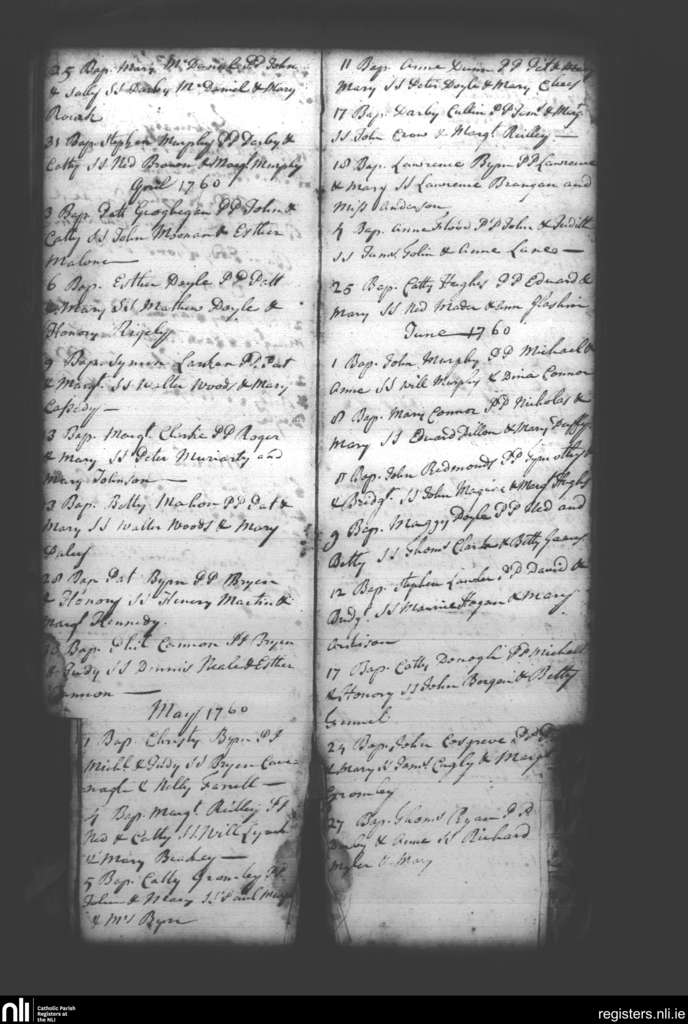 25 Bap. Mary McDaniel PP John
& Sally SS Darby McDaniel & Mary
Roark
31 Bap. Stephen Murphy PP Darby &
Catty SS Ned Brown & Margt Murphy
April 1760
3 Bap. Patt Geoghegan PP John &
Catty SS John Moonan & Esther
Malone
6 Bap. Esther Doyle PP Patt
& Mary SS Mathew Doyle &
Honory
9 Bap. Symon Larken PP. Pat
& Margt. SS Walter Woods & Mary
Cassedy
13 Bap. Margt. Clarke PP Roger
& Mary SS Peter Muriarty and
Mary Johnson
Bap. Betty Mahon PP Pat &
Mary SS Walter Woods & Mary
Daley
28 Bap Pat Byrn PP Bryen
& Honory SS Henery Martin &
Margt Kennedy.
Bap. Cannon PP Bryen
& Judy SS Dennis Neale & Esther
Cannon
May 1760
1 Bap. Christy Byrn PP
Michl. & Judy SS Bryen Cava-
nagh & Nelly Farrell
4 Bap. Margt. Reilley PP
Ned & Catty SS Will Lynch
& Mary
5 Bap. Catty Gromley PP
John & Mary SS Paul
& Mrs Byrn
11 Bap. Anne Dunn PP Pat & Mary
Mary SS Peter Doyle & Mary
17 Bap. Darby Cullin PP Jams. & Margt.
SS John Crow & Margt. Reilley
18 Bap. Lawrence Byrn PP Lawrence
& Mary SS Lawrence Brangan and
Miss Anderson
4 Bap. Anne PP John & Judith
SS Jams. Tolin & Anne Lane
25 Bap. Catty Hughes PP Edward &
Mary SS Ned Meader & Ann
June 1760
1 Bap. John Murphy PP Michael &
Anne SS Will Murphy & Dina Connor
8 Bap. Mary Connor PP Nicholas &
Mary SS Edward Dillon & Mary Duffy
11 Bap. John Redmonds PP Tymothy
& Bridgt. SS John Maguire & Margt Hughs
9 Bap. Maggy Doyle PP Ned and
Betty SS Thoms Clarke & Betty
12 Bap. Stephen Lawler PP David &
Bridgt. SS Maurice Hogan & Mary
17 Bap. Catty Donogh PP Michall
& Honory SS John Bergan & Betty
24 Bap. John Cosgrove PP
& Mary SS Jams. & Margt
Gromley
27 Bap. Thoms Ryan PP
Darby & Anne SS Richard
Myler & Mary
nli
Catholic Parish
Registers at
the NLI
registers.nli.ie